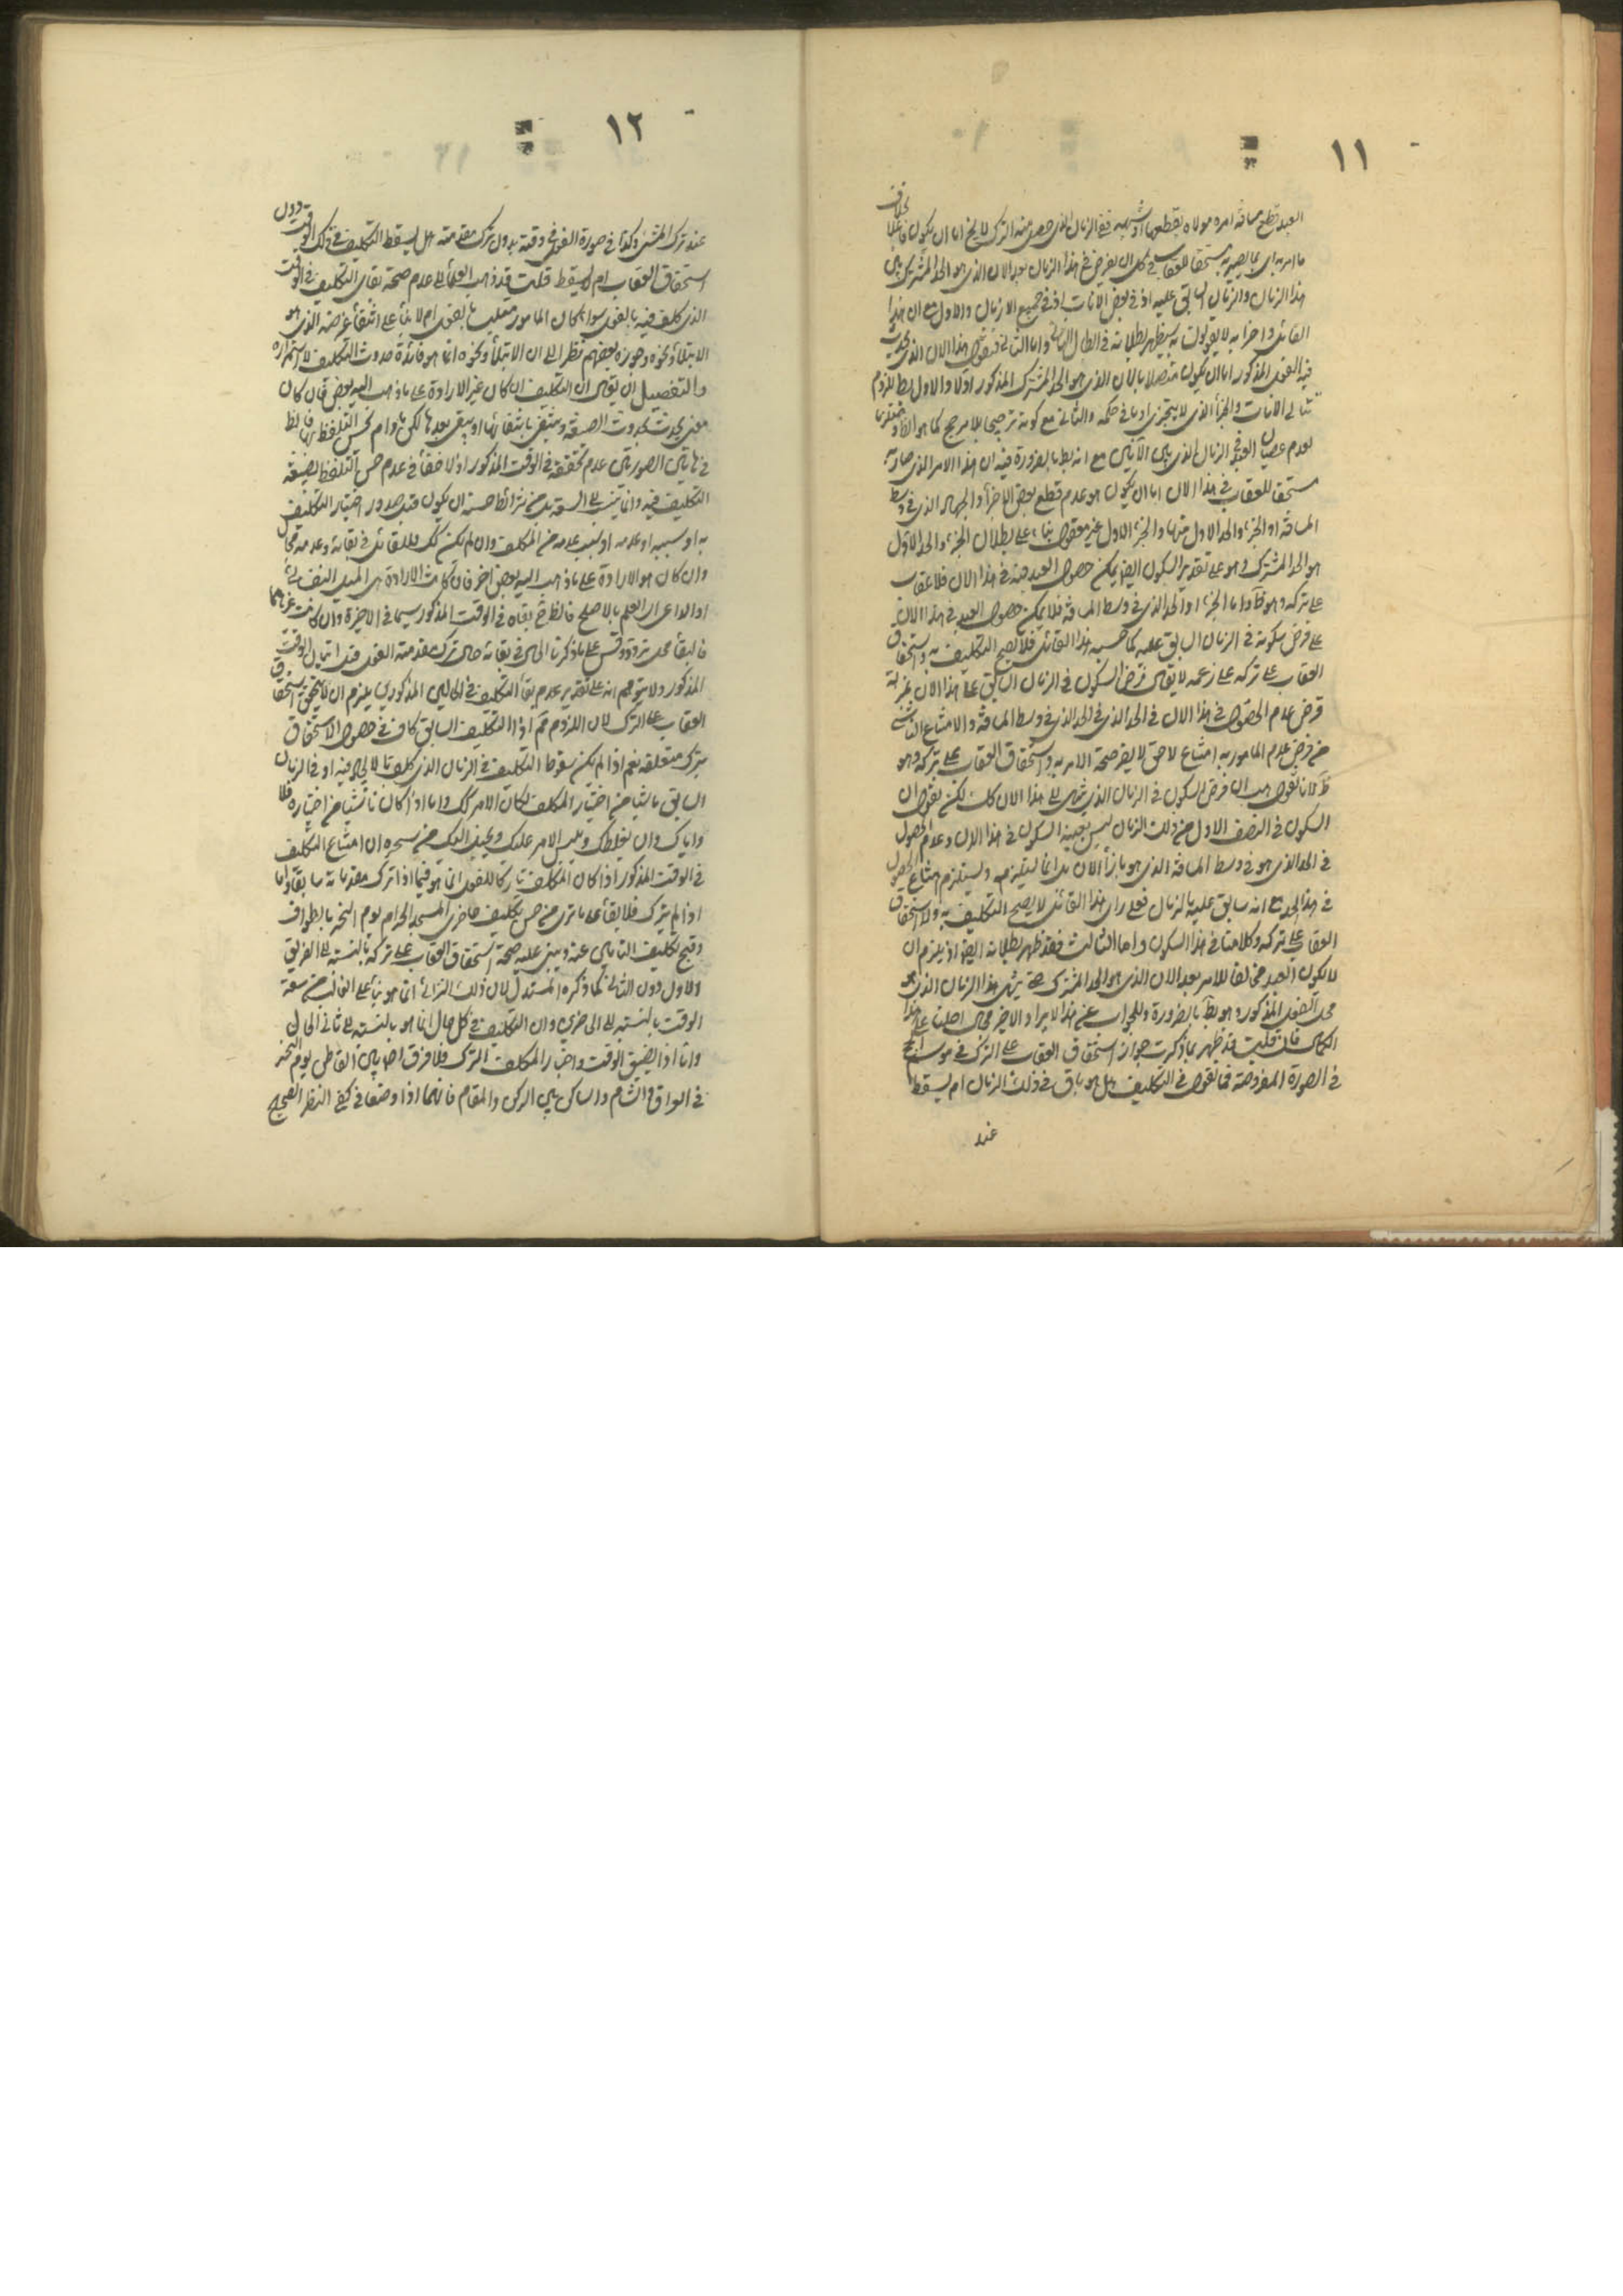 ١١
العبد قطع مسافة امره مولاه بقطعها ففي الزمان الذي حصل منه الترك لا يخ اما ان يكون فاعلا بخلاف
ما امر به اي بما يصير به مستحقا للعقاب في كل ان يفرض في هذا الزمان بعد الان الذي هو الحد المشترك بين
هذا الزمان والزمان السابق عليه او في بعض الانات او في جميع الازمان والاول مع ان هذا
القائل واحزابه لا يقولون به سيظهر بطلانه في ابطال الثالث واما الثاني فنقول هذا الان الذي يحدث
فيه الفعل المذكور اما ان يكون متصلا بالان الذي هو الحد المشترك المذكور اولا والاول بط للزوم
تتالي الانات والجزء الذي لا يتجزى او ما في حكمه والثاني مع كونه ترجيحا بلا مرجح كما هو الظاهر
لعدم عصيان العبد في الزمان الذي بين الآنين مع انه بط بالضرورة فيه ان هذا الامر الذي صار به
مستحقا للعقاب في هذا الان اما ان يكون هو عدم قطع بعض الاجزاء والجهة الذي في وسط
المسافة او الجزء والحد الاول منها والجزء الاول غير معقول بناء على بطلان الجزء والحد الاول
هو الحد المشترك وهو على تقدير السكون ايضا يمكن حصول العبد فيه في هذا الان فلا عقاب
على تركه وهو ظ واما الجزء او الحد الذي في وسط المسافة فلا يمكن حصول العبد في هذا الان
على فرض سكونه في الزمان السابق عليه كما حسبه هذا القائل فلا يصح التكليف به واستحقاق
العقاب على تركه على زعمه لا يقال فرض السكون في الزمان السابق على هذا الان بمنزلة
فرض عدم الحصول في هذا الان في الحد الذي في الحد الذي في وسط المسافة والامتناع الناشي
من فرض عدم المامور به امتناع لاحق لا يضر صحة الامر به واستحقاق العقاب على تركه وهو
ظ لانا نقول هب ان فرض السكون في الزمان الذي ينتهي الى هذا الان كذلك لكن نقول ان
السكون في النصف الاول من ذلك الزمان ليس بعينه السكون في هذا الان وعدم الحصول
في الحد الذي هو في وسط المسافة الذي هو بازاء الان بل انما يستلزمه ويستلزم امتناع الحصول
في هذا الحد مع انه سابق عليه بالزمان فعلى راي هذا القائل لا يصح التكليف به ولا استحقاق
العقاب على تركه وكلامنا في هذا السكون واما الثالث فقد ظهر بطلانه ايضا اذ يلزم ان
لا يكون العبد مخالفا للامر بعد الان الذي هو الحد المشترك حتى ينتهي هذا الزمان الذي هو
محل الفعل المذكور وهو بط بالضرورة وللجواب عن هذا الايراد الاخير محال احلنا على هذا
الكمال فان قلت قد ظهر بما ذكرت جواز استحقاق العقاب على الترك في موسم الحج
في الصورة المفروضة فما تقول في التكليف هل هو باق في ذلك الزمان ام يسقط
عند
١٢
عند ترك المشي وكذا في صورة الفعل في وقته بدون ترك مقدمته هل يسقط التكليف في ذلك الوقت دون
استحقاق العقاب ام لا يسقط قلت قد ذهب العلماء الى عدم صحة بقاء التكليف في الوقت
الذي كلف فيه بالفعل سواء كان المامور متلبسا بالفعل ام لا بناء على انتفاء غرضه الذي هو
الابتلاء ونحوه وجوزه بعضهم نظرا الى ان الابتلاء ونحوه انما هو فائدة حدوث التكليف لا استمراره
والتفصيل ان يقال ان التكليف ان كان غير الارادة على ما ذهب اليه بعض فان كان
معنى يحدث بحدوث الصيغة وينتفي بانتفائها او يبقى بعدها لكن ما دام يحسن التلفظ بها فالظ
في هاتين الصورتين عدم تحققه في الوقت المذكور اذ لا خفاء في عدم حسن التلفظ بصيغة
التكليف فيه وانما ينسب الى السفه بل من شرائط حسنه ان يكون قبل صدور اختيار التكليف
به او سببه او عدمه او سبب عدمه من المكلف وان لم يكن كك فللقائل في بقائه وعدمه مجال
وان كان هو الارادة على ما ذهب اليه بعض اخر فان كانت الارادة هي الميل النفساني
او الداعي او العلم بالاصلح فالظ بقاه في الوقت المذكور سيما في الاخيرة وان كانت غيرهما
فالبقاء محل تردد وقس على ما ذكرنا الحال في بقائه حال ترك مقدمته الفعل قبل اتيان الوقت
المذكور ولا يتوهم انه على تقدير عدم بقاء التكليف في الحالين المذكورين يلزم ان لا يتحقق استحقاق
العقاب على الترك لان اللزوم مم اذ التكليف السابق كاف في حصول الاستحقاق
بترك متعلقه نعم اذا لم يكن سقوط التكليف في الزمان الذي كلف بالاتيان فيه او في الزمان
السابق ناشيا من اختيار المكلف لكان الامر كك واما اذا كان ناشيا من اختياره فلا
واياك وان يغلطك ويلبس الامر عليك ويخيل اليك من سحره ان امتناع التكليف
في الوقت المذكور اذا كان المكلف تاركا للفعل انما هو فيما اذا ترك مقدماته سابقا واما
اذا لم يترك فلا بناء على ما ترى من حسن تكليف حاضري المسجد الحرام يوم النحر بالطواف
وقبح تكليف النائين عنه ويبنى عليه صحة استحقاق العقاب على تركه بالنسبة الى الفريق
الاول دون الثاني كما ذكره المستدل لان ذلك التراء انما هو بناء على الغالب من سعة
الوقت بالنسبة الى الحاضرين وان التكليف في كل حال انما هو بالنسبة الى ثاني الحال
واما اذا يضيق الوقت واختار المكلف الترك فلا فرق اصلا بين القاطن يوم النحر
في العراق والشام والساكن بين الركن والمقام فانهما اذا وضعا في كفتي النظر الصحيح